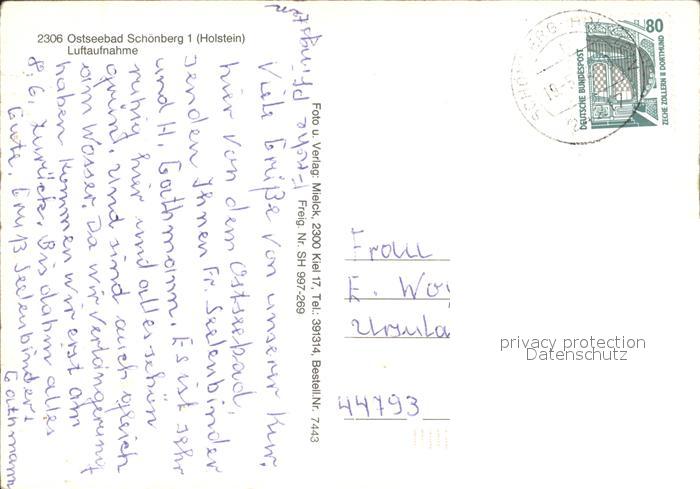 2306 Ostseebad Schönberg 1 (Holstein)
Luftaufnahme
Frohe Pfingsten
Viele Grüße von unserer Kur,
hier von dem Ostseebad,
senden Ihnen Fr. Seelenbinder
und H. Gathmann. Es ist sehr
ruhig hier und alles schön
grün, und sind auch gleich
am Wasser. Da wir Verlängerung
haben kommen wir erst am
8.6. zurück. Bis dahin alles
Gute Gruß Seelenbinder
Gathmann
Foto u. Verlag: Mielck, 2300 Kiel 17, Tel.: 391314, Bestell.Nr. 7443
Freig. Nr. SH 997-269
80
DEUTSCHE BUNDESPOST
ZECHE ZOLLERN II DORTMUND
Frau
E.
Ursula
44793
privacy protection
Datenschutz